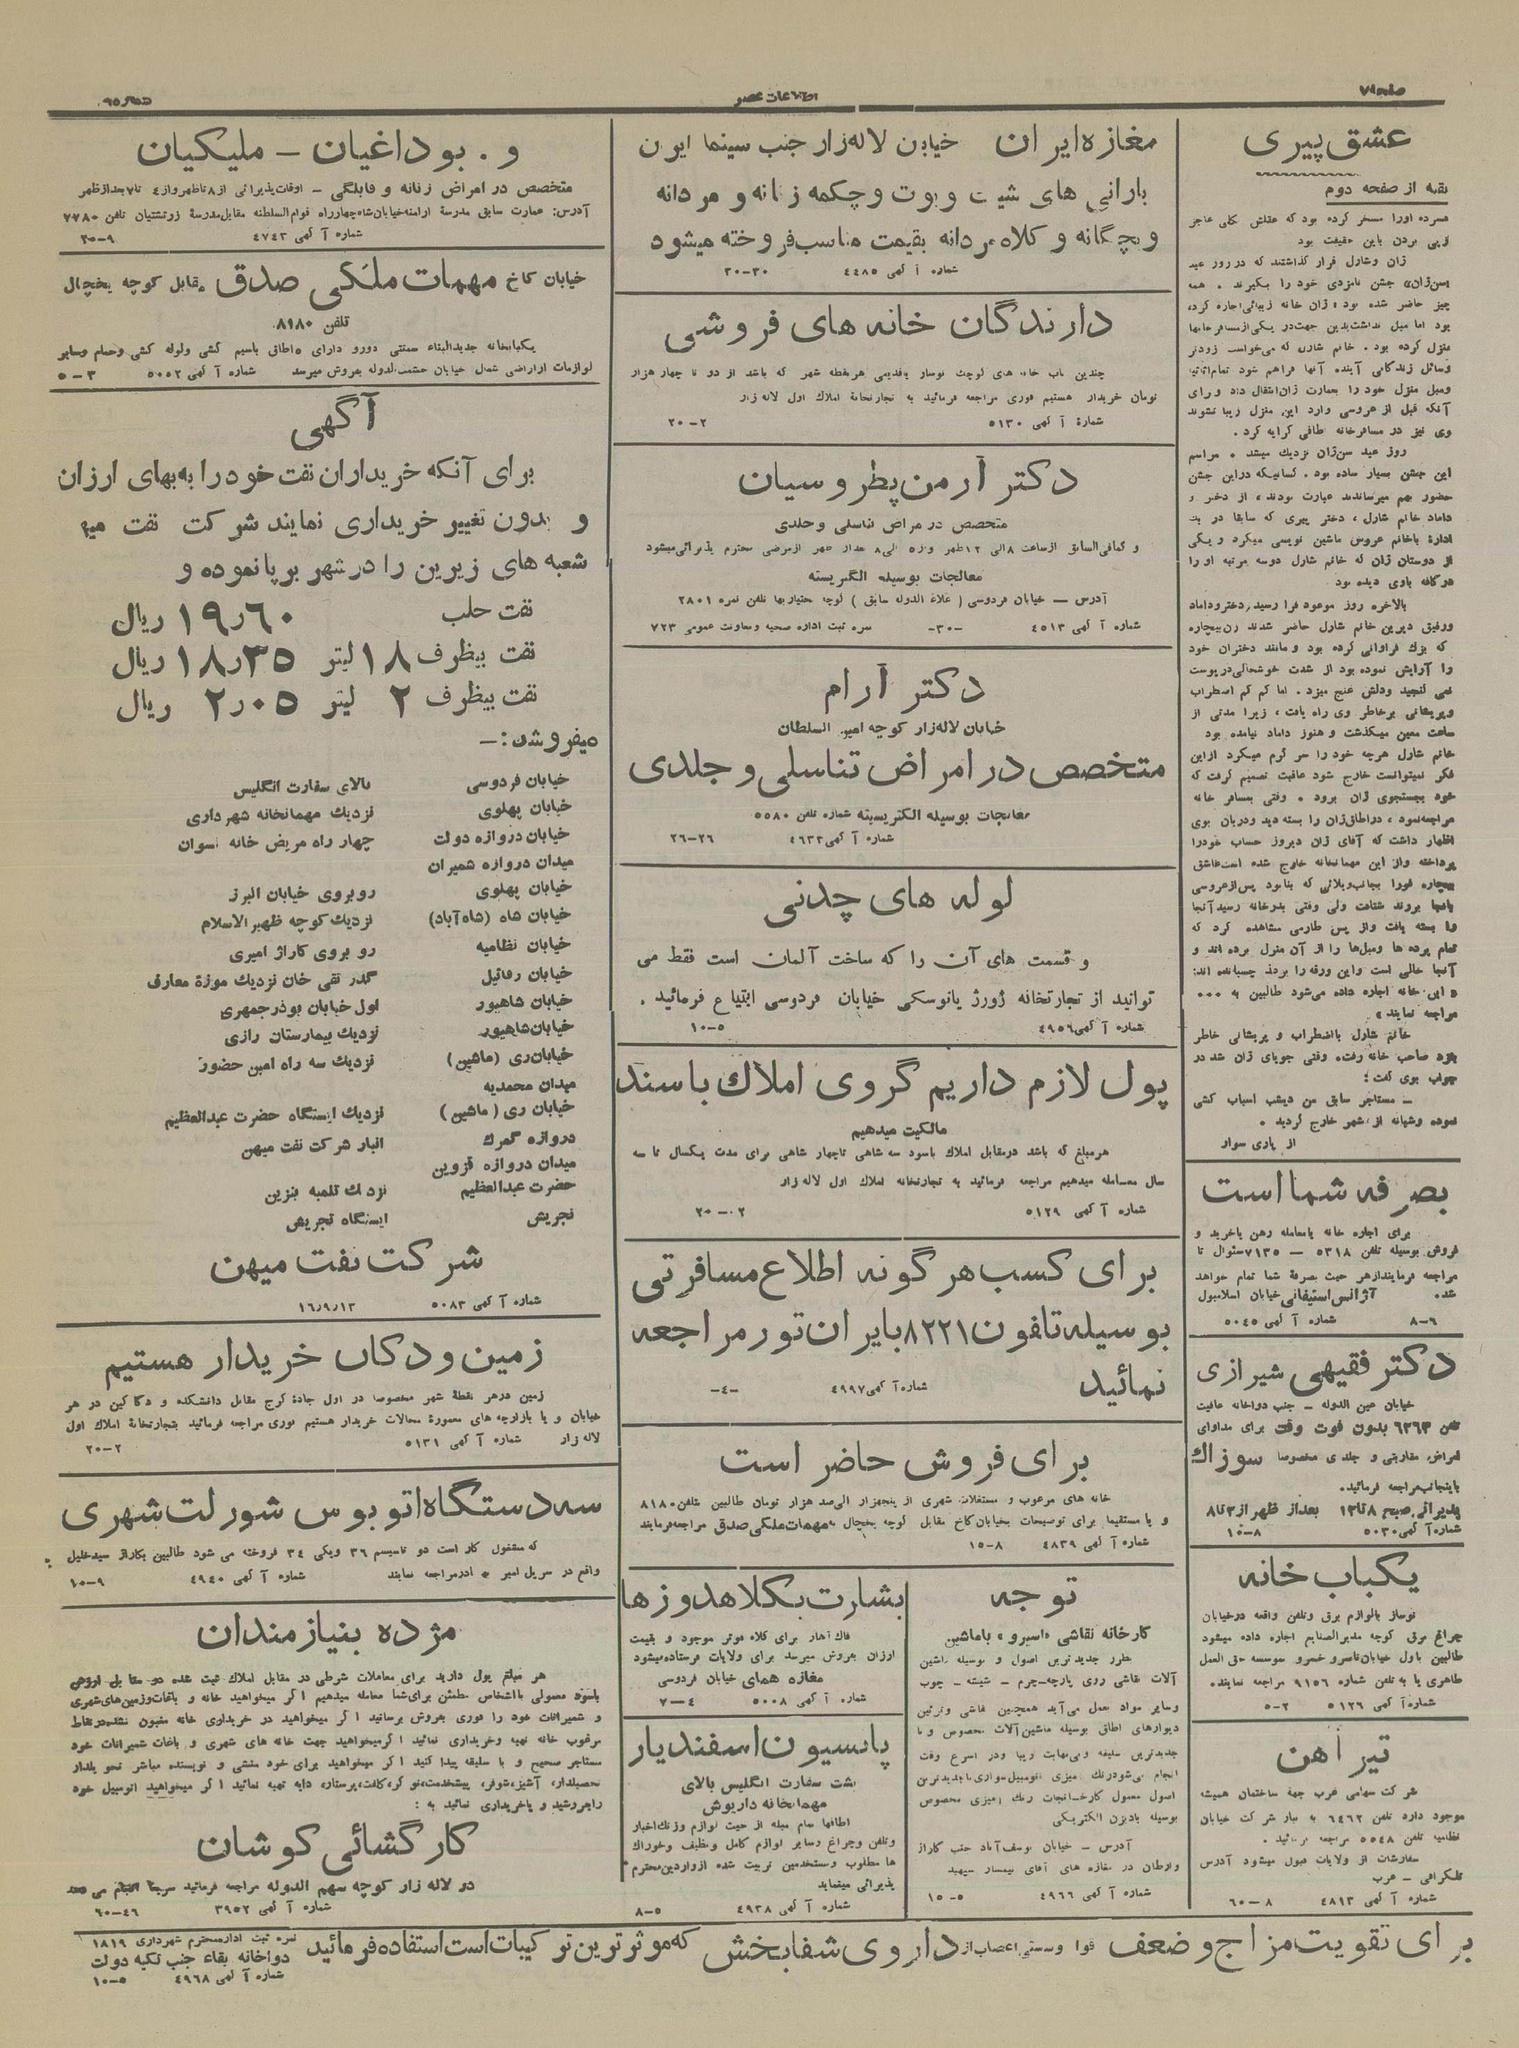 اطلاعات عصر
عشق پیری
بقیه از صفحه دوم
کرده بود که عقلش بکلی عاجز
از پی بردن باین حقیقت بود
ژان وشارل قرار گذاشتند که در روز عید
سن‌ژان» جشن نامزدی خود را بگیرند . همه
چیز حاضر شده بود ژان خانه زیبائی اجاره کرده
منزل کرده بود . خانم شارل که می‌خواست زودتر
وسائل زندگانی آینده آنها فراهم شود تمام اثاثیه
ومبل منزل خود را بعمارت ژان انتقال داد و برای
آنکه قبل از عروسی وارد این منزل زیبا نشوند
وی نیز در مسافرخانه اطاقی کرایه کرد .
روز عید سن‌ژان نزدیک میشد . مراسم
این جشن بسیار ساده بود . کسانیکه دراین جشن
حضور بهم میرساندند عبارت بودند ، از دختر و
داماد خانم شارل ، دختر پیری که سابقا در یك
ادارهٔ باخانم عروس ماشین نویسی میکرد و یکی
از دوستان ژان که خانم شارل دوسه مرتبه او را
بالاخره روز موعود فرا رسید. دختروداماد
ورفیق دیرین خانم شارل حاضر شدند زن بیچاره
که بزك فراوانی کرده بود و مانند دختران خود
را آرایش نموده بود از شدت خوشحالی در پوست
نمی گنجید ودلش غنج میزد . اما کم کم اضطراب
وپریشانی برخاطر وی راه یافت ، زیرا مدتی از
ساعت معین میگذشت و هنوز داماد نیامده بود
خانم شارل هرچه خود را سر گرم میکرد از این
فکر نمیتوانست خارج شود عاقبت تصمیم گرفت که
خود بجستجوی ژان برود . وقتی بمسافر خانه
مراجعه نمود ، در اطاق ژان را بسته دید ودربان بوی
اظهار داشت که آقای ژان دیروز حساب خودرا
پرداخته واز این مهمانخانه خارج شده است عاشق
بیچاره فورا بجانب ویلائی که بنابود پس از عروسی
بآنجا بروند شتافت ولی وقتی بدرخانه رسید آنجا
را بسته یافت واز پس طارمی مشاهده کرد که
تمام پرده ها ومبل‌ها را از آن منزل برده اند و
آنجا خالی است واین ورقه را بردر چسبانده اند:
« این خانه اجاره داده می‌شود طالبین به ...
مراجعه نمایند »
خانم شارل بااضطراب و پریشانی خاطر
نزد صاحب خانه رفت و وقتی جویای ژان شد در
جواب بوی گفت :
ـ مستاجر سابق من دیشب اسباب کشی
نموده وشبانه از شهر خارج گردید .
از پاری سوار
بصرفه شما است
برای اجاره خانه یامعامله رهن یاخرید و
فروش بوسیله تلفن ۵۳۱۸ — ۷۱۳۵ سئوال تا
مراجعه فرمایند از هر حیث بصرفهٔ شما تمام خواهد
شد. آژانس استپفانی خیابان اسلامبول
۸-۶ شماره آ گهی ۵۰۴۵
دکتر فقیهی شیرازی
خیابان عین الدوله – جنب دواخانه عاقبت
تلفن ۶۲۶۴ بدون فوت وقت برای مداوای
امراض مقاربتی و جلدی مخصوصا سوزاك
باینجانب مراجعه فرمائید.
پذیرائی صبح ۸ تا ۱۲ بعداز ظهر از ۳ تا ۸
شماره آ گهی ۵۰۳۰ ۱۰-۸
یکباب خانه
نوساز بالوازم برق وتلفن واقعه درخیابان
چراغ برق کوچه مدیرالصنایع اجاره داده میشود
طالبین باول خیابان ناصرو خسرو موسسه حق العمل
طاهری یا به تلفن شماره ۹۱۵۶ مراجعه نمایند.
شماره آ گهی ۵۱۲۶ ۵-۲
تیر آهن
شرکت سهامی غرب جهة ساختمان همیشه
موجود دارد تلفن ۶۴۶۲ به شرکت خیابان
نظامیه تلفن ۵۵۴۸ مراجعه فرمائید .
سفارشات از ولایات قبول میشود آدرس
تلگرافی – غرب
شماره آ گهی ۴۸۱۳ ۶۰-۸
مغازه ایران خیابان لاله‌زار جنب سینما ایران
بارانی های شیك و بوت و چکمه زنانه و مردانه
و بچگانه و کلاه مردانه بقیمت مناسب فروخته میشود
شماره آ گهی ۴۴۸۵ ۳۰-۳۰
دارندگان خانه های فروشی
چندین باب خانه های کوچك نوساز یاقدیمی هرنقطه شهر که باشد از دو تا چهار هزار
تومان خریدار هستیم فوری مراجعه فرمائید به تجارتخانهٔ املاك اول لاله زار
شماره آ گهی ۵۱۳۰ ۲۰-۲
دکتر آرمن پطروسیان
متخصص در امراض تناسلی و جلدی
و کمافی‌السابق از ساعت ۸ الی ۱۲ ظهر و از ۵ الی ۸ بعداز ظهر از مرضی محترم پذیرائی میشود
معالجات بوسیله الکتریسته
آدرس — خیابان فردوسی ( علاء الدوله سابق ) کوچه بختیاریها تلفن نمره ۲۸۰۱
شماره آ گهی ۴۵۱۳ -۳۰- نمره ثبت اداره صحیه ومعاونت عمومی ۷۲۳
دکتر آرام
خیابان لاله‌زار کوچه امین السلطان
متخصص در امراض تناسلی و جلدی
معالجات بوسیله الکتریسیته شماره تلفن ۵۵۸۰
شماره آ گهی ۴۶۳۳ ۲۶-۲۶
لوله های چدنی
و قسمت های آن را که ساخت آلمان است فقط می
توانید از تجارتخانه ژورژ یانوسکی خیابان فردوسی ابتیاع فرمائید .
شماره آ گهی ۴۹۵۶ ۱۰-۵
پول لازم داریم گروی املاك باسند
مالکیت میدهیم
هرمبلغ که باشد درمقابل املاك باسود سه شاهی تاچهار شاهی برای مدت یکسال تا سه
سال معامله میدهیم مراجعه فرمائید به تجارتخانه املاك اول لاله زار
شماره آ گهی ۵۱۲۹ ۲۰-۲
برای کسب هر گونه اطلاع مسافرتی
بوسیله تلفون ۸۲۲۱ بایران تور مراجعه
نمائید شماره آ گهی ۴۹۹۷ -۴-
برای فروش حاضر است
خانه های مرغوب و مستغلات شهری از پنجهزار الی صد هزار تومان طالبین بتلفن ۸۱۸۰
و یا مستقیما برای توضیحات بخیابان کاخ مقابل کوچه یخچال به مهمات ملکی صدق مراجعه فرمایند
شماره آ گهی ۴۸۳۹ ۱۵-۸
توجه
کارخانه نقاشی «اسپرو» باماشین
بطرز جدیدترین اصول و بوسیله ماشین
آلات نقاشی روی پارچه – چرم – شیشه – چوب
وسایر مواد بعمل می‌آید همچنین نقاشی وتزئین
دیوارهای اطاق بوسیله ماشین آلات مخصوص و با
جدیدترین سلیقه و بی‌نهایت زیبا ودر اسرع وقت
انجام می‌شود رنگ آمیزی اتومبیل سواری باجدیدترین
اصول معمول کارخانجات رنگ آمیزی مخصوص
بوسیله بادبزن الکتریکی
آدرس – خیابان یوسف آباد جنب گاراژ
وارطان در مغازه های آقای تیمسار سپهبد
شماره آ گهی ۴۹۶۶ ۱۵-۵
بشارت بکلاهدوزها
فاك آهار برای کلاه موتر موجود و بقیمت
ارزان بفروش میرسد برای ولایات فرستاده میشود
مغازه همای خیابان فردوسی
شماره آ گهی ۵۰۰۸ ۷-۴
پانسیون اسفندیار
پشت سفارت انگلیس بالای
مهمانخانه داریوش
اطاقها تمام مبله از حیث لوازم
وتلفن وچراغ وسایر لوازم کامل ونظیف وخوراك
ها مطلوب ومستخدمین تربیت شده از واردین محترم
پذیرائی مینماید
شماره آ گهی ۴۹۳۸ ۸-۵
و . بوداغیان – ملیکیان
متخصص در امراض زنانه و قابلگی – اوقات پذیرائی از ۸ تا ظهر و از ۴ تا ۷ بعداز ظهر
آدرس: عمارت سابق مدرسهٔ ارامنه خیابان شاه چهارراه قوام السلطنه مقابل مدرسهٔ زرتشتیان تلفن ۷۷۸۰
شماره آ گهی ۴۷۴۳ ۲۰-۹
خیابان کاخ مهمات ملکی صدق مقابل کوچه یخچال
تلفن ۸۱۸۰
یکبابخانه جدیدالبناء سمنتی دورو دارای ۵ اطاق باسیم کشی ولوله کشی وحمام وسایر
لوازمات از اراضی شمال خیابان حشمت‌الدوله بفروش میرسد شماره آ گهی ۵۰۵۲ ۵-۳
آگهی
برای آنکه خریداران نفت خود را به بهای ارزان
و بدون تغییر خریداری نمایند شرکت نفت میهن
شعبه های زیرین را در شهر برپا نموده و
نفت حلب ۱۹٫۶۰ ریال
نفت بیظرف ۱۸ لیتر ۱۸٫۳۵ ریال
نفت بیظرف ۲ لیتر ۲٫۰۵ ریال
میفروشد: –
خیابان فردوسی بالای سفارت انگلیس
خیابان پهلوی نزدیك مهمانخانه شهرداری
خیابان دروازه دولت چهار راه مریض خانه نسوان
میدان دروازه شمیران
خیابان پهلوی روبروی خیابان البرز
خیابان شاه (شاه‌آباد) نزدیك کوچه ظهیرالاسلام
خیابان نظامیه رو بروی گاراژ امیری
خیابان رفائیل گذر تقی خان نزدیك موزهٔ معارف
خیابان شاهپور اول خیابان بوذرجمهری
خیابان شاهپور نزدیك بیمارستان رازی
خیابان ری (ماشین) نزدیك سه راه امین حضور
میدان محمدیه
خیابان ری ( ماشین ) نزدیك ایستگاه حضرت عبدالعظیم
دروازه گمرك انبار شرکت نفت میهن
میدان دروازه قزوین
حضرت عبدالعظیم نزدیك تلمبه بنزین
تجریش ایستگاه تجریش
شرکت نفت میهن
شماره آ گهی ۵۰۸۳ ۱۶٫۹٫۱۳
زمین و دکان خریدار هستیم
زمین درهر نقطهٔ شهر مخصوصا در اول جادهٔ کرج مقابل دانشکده و دکاکین در هر
خیابان و یا بازارچه های معمورهٔ محالات خریدار هستیم فوری مراجعه فرمائید بتجارتخانهٔ املاك اول
لاله زار شماره آ گهی ۵۱۳۱ ۲۰-۲
سه دستگاه اتوبوس شورلت شهری
که مشغول کار است دو تاسیسم ۳۶ ویکی ۳۴ فروخته می شود طالبین بگاراژ سیدخلیل
واقع در سرپل امیر مراجعه نمایند شماره آ گهی ۴۹۴۰ ۱۰-۹
مژده بنیازمندان
هر مبلغ پول دارید برای معاملات شرطی در مقابل املاك ثبت شده
باسود معمولی بااشخاص مطمئن برای شما معامله میدهیم اگر میخواهید خانه و باغات وزمین‌های شهری
و شمیرانات خود را فوری بفروش برسانید اگر میخواهید در خریداری خانه مغبون نشده در نقاط
مرغوب خانه تهیه وخریداری نمائید اگرمیخواهید جهت خانه های شهری و باغات شمیرانات خود
مستاجر صحیح و با سلیقه پیدا کنید اگر میخواهید برای خود منشی و نویسنده مباشر تحویلدار
تحصیلدار، آشپز، شوفر، پیشخدمت، نوکر، کلفت، پرستار، دایه تهیه نمائید اگر میخواهید اتومبیل خود
رابفروشید و یاخریداری نمائید به :
کارگشائی کوشان
در لاله زار کوچه سهم الدوله مراجعه فرمائید سریعا
شماره آ گهی ۳۹۵۲ ۶۰-۴۶
برای تقویت مزاج و ضعف قوا وسستی اعصاب از داروی شفابخش که موثرترین ترکیبات است استفاده فرمائید
نمره ثبت اداره محترم شهرداری ۱۸۱۹
دواخانه بقاء جنب تکیه دولت
شماره آ گهی ۴۹۶۸ ۱۰-۵